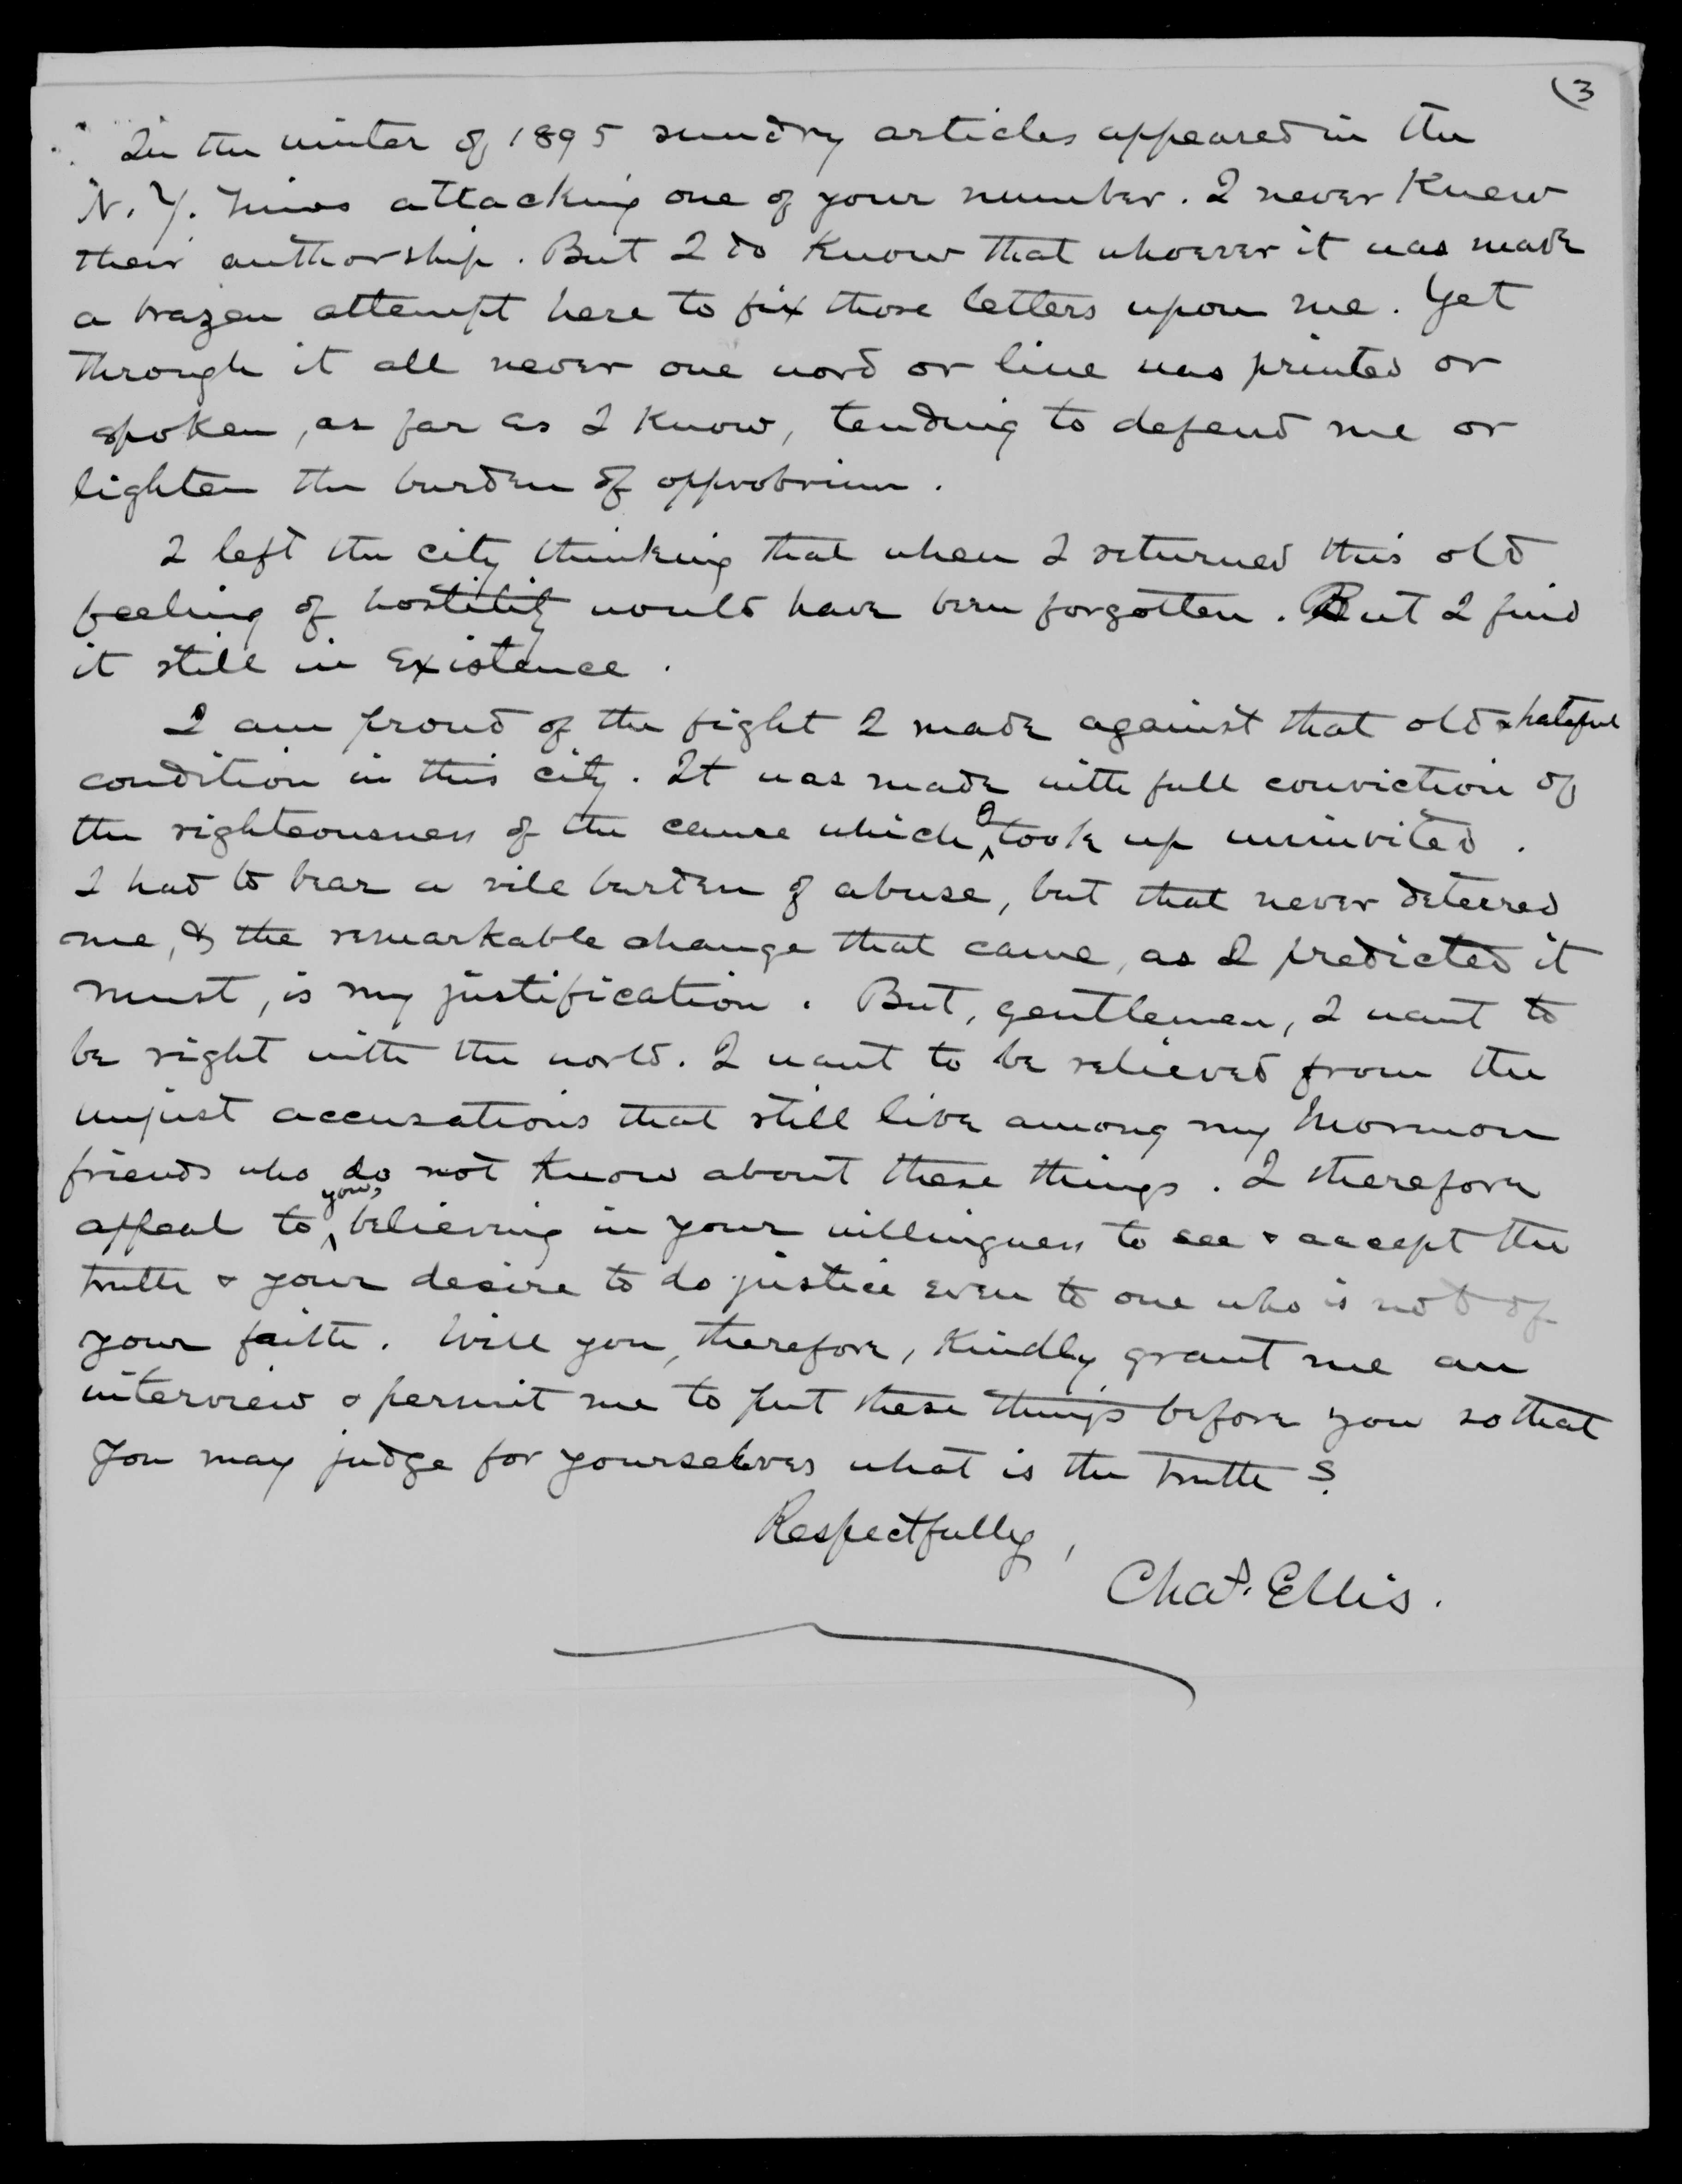 (3
In the winter of 1895 sundry articles appeared in the
N. Y. Times attacking one of your number. I never knew
their authorship. But I do know that whoever it was made
a brazen attempt here to fix those letters upon me. Yet
through it all never one word or line was printed or
spoken, as far as I know, tending to defend me or
lighten the burden of opprobrium.
I left the city thinking that when I returned this old
feeling of hostility would have been forgotten. But I find
it still in existence.
I am proud of the fight I made against that old & hateful
condition in this city. It was made with full conviction of
the righteousness of the cause which I took up uninvited.
I had to bear a vile burden of abuse, but that never deterred
me, & the remarkable change that came, as I predicted it
must, is my justification. But, gentlemen, I want to
be right with the world. I want to be relieved from the
unjust accusations that still live among my Mormon
friends who do not know about these things. I therefore
appeal to you, believing in your willingness to see & accept the
truth & your desire to do justice even to one who is not of
your faith. Will you, therefore, kindly grant me an
interview & permit me to put these things before you so that
you may judge for yourselves what is the truth?
Respectfully,
Chas. Ellis.